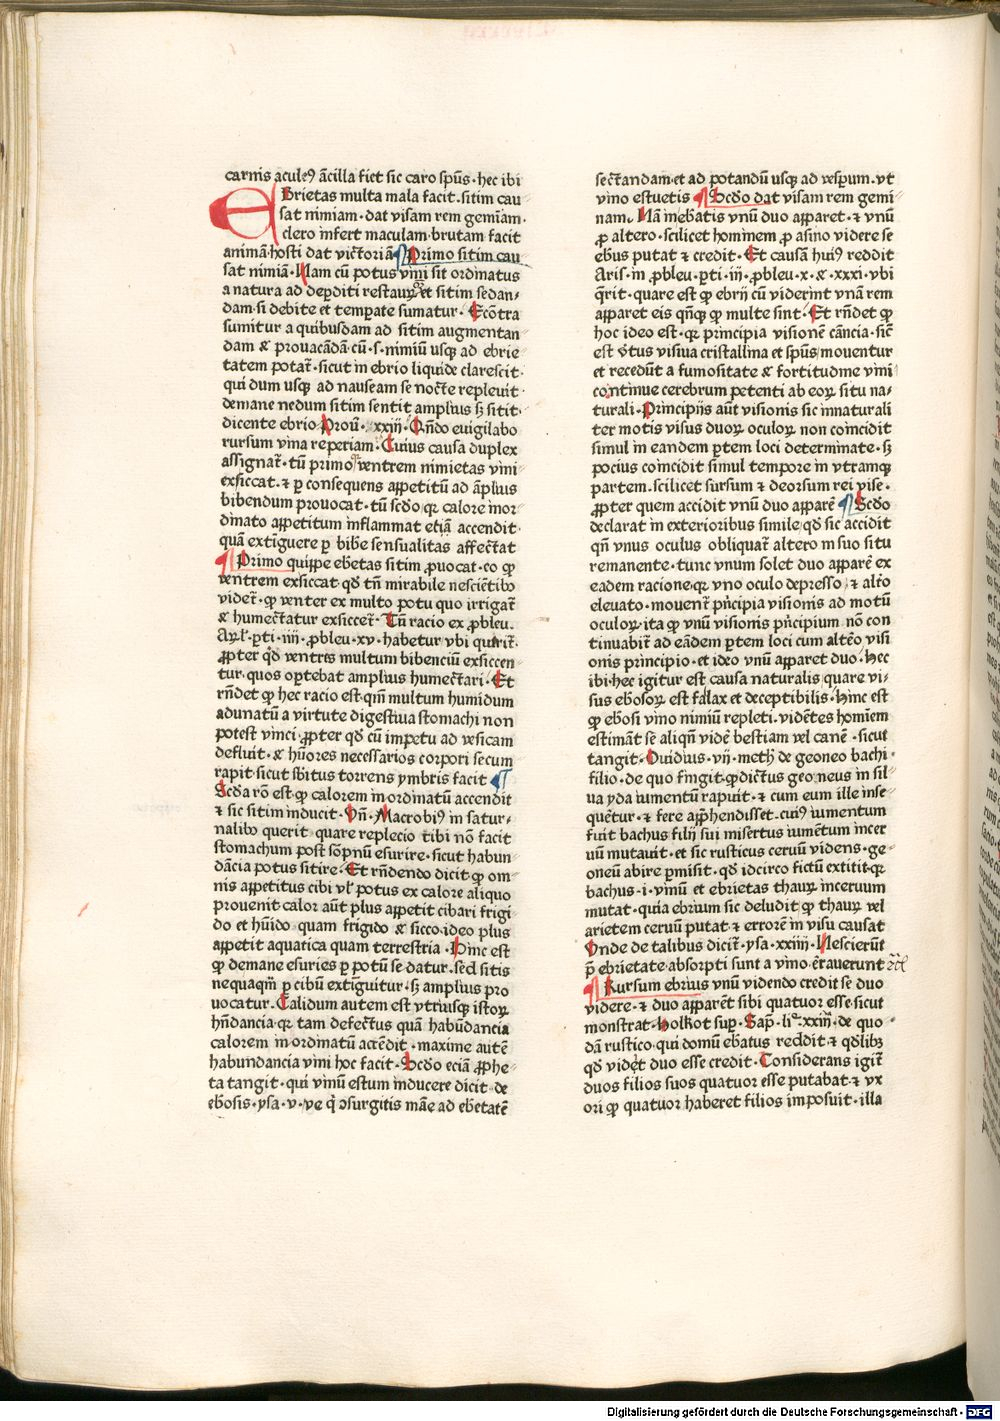 carnis aculeꝰ ācilla fiet sic caro spūs· hec ibi
EBrietas multa mala facit. sitim cau
sat nimiam· dat visam rem gemīam·
clero infert maculam· brutam facit
animā· hosti dat victoriā ¶ Primo sitim cau
sat nimiā· Nam cū potus vini sit ordinatus
a natura ad deꝑditi restaurꝫ et sitim sedan⸗
dam· si debite et temꝑate sumatur· Ecōtra
sumitur a quibusdam ad sitim augmentan
dam & prouacādā cū·s·nimiū usqꝫ ad ebrie
tatem potat̄· sicut in ebrio liquide clarescit·
qui dum usqꝫ ad nauseam se nocte repleuit·
demane nedum sitim sentit amplius sꝫ sitit·
dicente ebrio Prou̅· xxiij· Qn̄do euigilabo
rursum vina reperiam· Cuius causa duplex
assignat̄· tū primo ventrem nimietas vini
exsiccat· ⁊ ꝑ consequens aꝑpetitū ad āplius
bibendum prouocat· tū scd̄o qꝛ calore inor⸗
dinato aꝑpetitum inflammat etiā accendit·
quā extinguere ꝑ bibe sensualitas affectat
¶ Primo quiꝑpe ebetas sitim ꝓuocat· eo ꝙ
ventrem exsiccat qd̄ tn̄ mirabile nesciētibꝰ
videt̄· ꝙ venter ex multo potu quo irrigat̄
& humectatur exsiccet̄· Cū racio ex ꝓbleu·
Arl̄· ꝑti·iiij·ꝓbleu·xv· habetur vbi querit̄·
ꝓpter qd̄ ventris multum bibenciū exsiccen
tur· quos oꝑtebat amplius humectari· Et
rn̄det ꝙ hec racio est· qm̄ multum humidum
adunatū a virtute digestiua stomachi non
potest vinci ꝓpter qd̄ cū impetu ad vesicam
defluit· & hūores necessarios corpori secum
rapit sicut sb̄itus torrens ymbris facit ¶
Scd̄a rō est ꝙ calorem in ordinatū accendit
⁊ sic sitim inducit· Vn̄· Macrobiꝰ in satur⸗
nalibꝰ querit quare replecio tibi nō facit
stomachum post sōpnū esurire· sicut habun⸗
dācia potus sitire· Et rn̄dendo dicit ꝙ om⸗
nis aꝑpetitus cibi vl̄ potus ex calore aliquo
prouenit calor aūt plus aꝑpetit cibari frigi
do et hūido quam frigido & sicco· ideo plus
aꝑpetit aquatica quam terrestria· Hinc est
ꝙ demane esuries ꝑ potū se datur· sed sitis
nequaqm̄ ꝑ cibū extinguitur· sꝫ amplius pro
uocatur· Calidum autem est vtriusqꝫ istoꝝ
hn̄dancia· qꝛ tam defectus quā habūdancia
calorem in ordinatū accēdit· maxime autē
habundancia vini hoc facit· Scd̄o eciā ꝓphe
ta tangit· qui vinū estum inducere dicit de
ebosis· ysa·v·ve q̄ ↄsurgitis māe ad ebetatē
sectandam· et ad potandū usqꝫ ad vesꝑum· vt
vino estuetis ¶ Scd̄o dat visam rem gemi⸗
nam· Nā inebatis vnū duo aꝑparet· ⁊ vnū
ꝓ altero· scilicet hominem ꝓ asino videre se
ebus putat ⁊ credit· Et causā huiꝰ reddit
Aris·in ꝓbleu·ꝑti·iij·ꝓbleu·x·&·xxxi·vbi
q̄rit· quare est ꝙ ebrij cū viderint vnā rem
aꝑparet eis qn̄qꝫ ꝙ multe sint· Et rn̄det ꝙ
hoc ideo est· qꝛ principia visionē cāncia· sic̄
est v̄tus visiua cristallina et spūs mouentur
et recedūt a fumositate & fortitudine vini
continue cerebrum petenti ab eoꝝ situ na⸗
turali· Principijs aūt visionis sic innaturali
ter motis visus duoꝝ oculoꝝ non coincidit
simul in eandem ꝑtem loci determinate· sꝫ
pocius coincidit simul tempore in vtramqꝫ
partem· scilicet sursum ⁊ deorsum rei vise·
ꝓpter quem accidit vnū duo apparē ¶ Scd̄o
declarat in exterioribus simile· qd̄ sic accidit
qn̄ vnus oculus obliquat̄ altero in suo situ
remanente· tunc vnum solet duo apparē ex
eadem racione· qꝛ vno oculo depresso· ⁊ alt̄o
eleuato· mouent̄ pn̄cipia visionis ad motū
oculoꝝ· ita ꝙ vnū visionis pn̄cipium nō con
tinuabit̄ ad eādem ꝑtem loci cum alt̄o visi
onis principio· et ideo vnū aꝑparet duo· Hec
ibi· hec igitur est causa naturalis quare vi⸗
sus ebosoꝝ est falax et deceptibilis· Hinc est
ꝙ ebosi vino nimiū repleti· vidētes hominem
estimāt se aliqn̄ vidē bestiam vel canē· sicut
tangit· Ouidius·vij·meth̄ de geoneo bachi
filio· de quo fingit· ꝙ dictus geoneus in sil⸗
ua yda iumentū rapuit· ⁊ cum eum ille inse⸗
quētur· ⁊ fere aꝑp̄hendisset· cuiꝰ iumentum
fuit bachus filij sui misertus iumētum in cer
uū mutauit· et sic rusticus ceruū videns· ge⸗
oneū abire ꝑmisit· qd̄ idcirco fictū extitit· qꝛ
bachus·i·vinū et ebrietas thauꝝ in ceruum
mutat· quia ebrium sic deludit ꝙ thauꝝ vel
arietem ceruū putat ⁊ errorē in visu causat
Onde de talibus dicit̄·ysa·xxiiij·Nescierūt
p̄ ebrietate absorpti sunt a vino· ēraverunt rc̄l
¶ Rursum ebrius vnū videndo credit se duo
videre· ⁊ duo aꝑparēt sibi quatuor esse sicut
monstrat· holkot suꝑ·Sap̄·li°·xxiij·de quo
dā rustico· qui domū ebatus reddit ⁊ qd̄libꝫ
qd̄ videt duo esse credit· Considerans igit̄
duos filios suos quatuor esse putabat· ⁊ vx
ori ꝙ quatuor haberet filios imposuit· illa
Digitalisierung gefördert durch die Deutsche Forschungsgemeinschaft - DFG